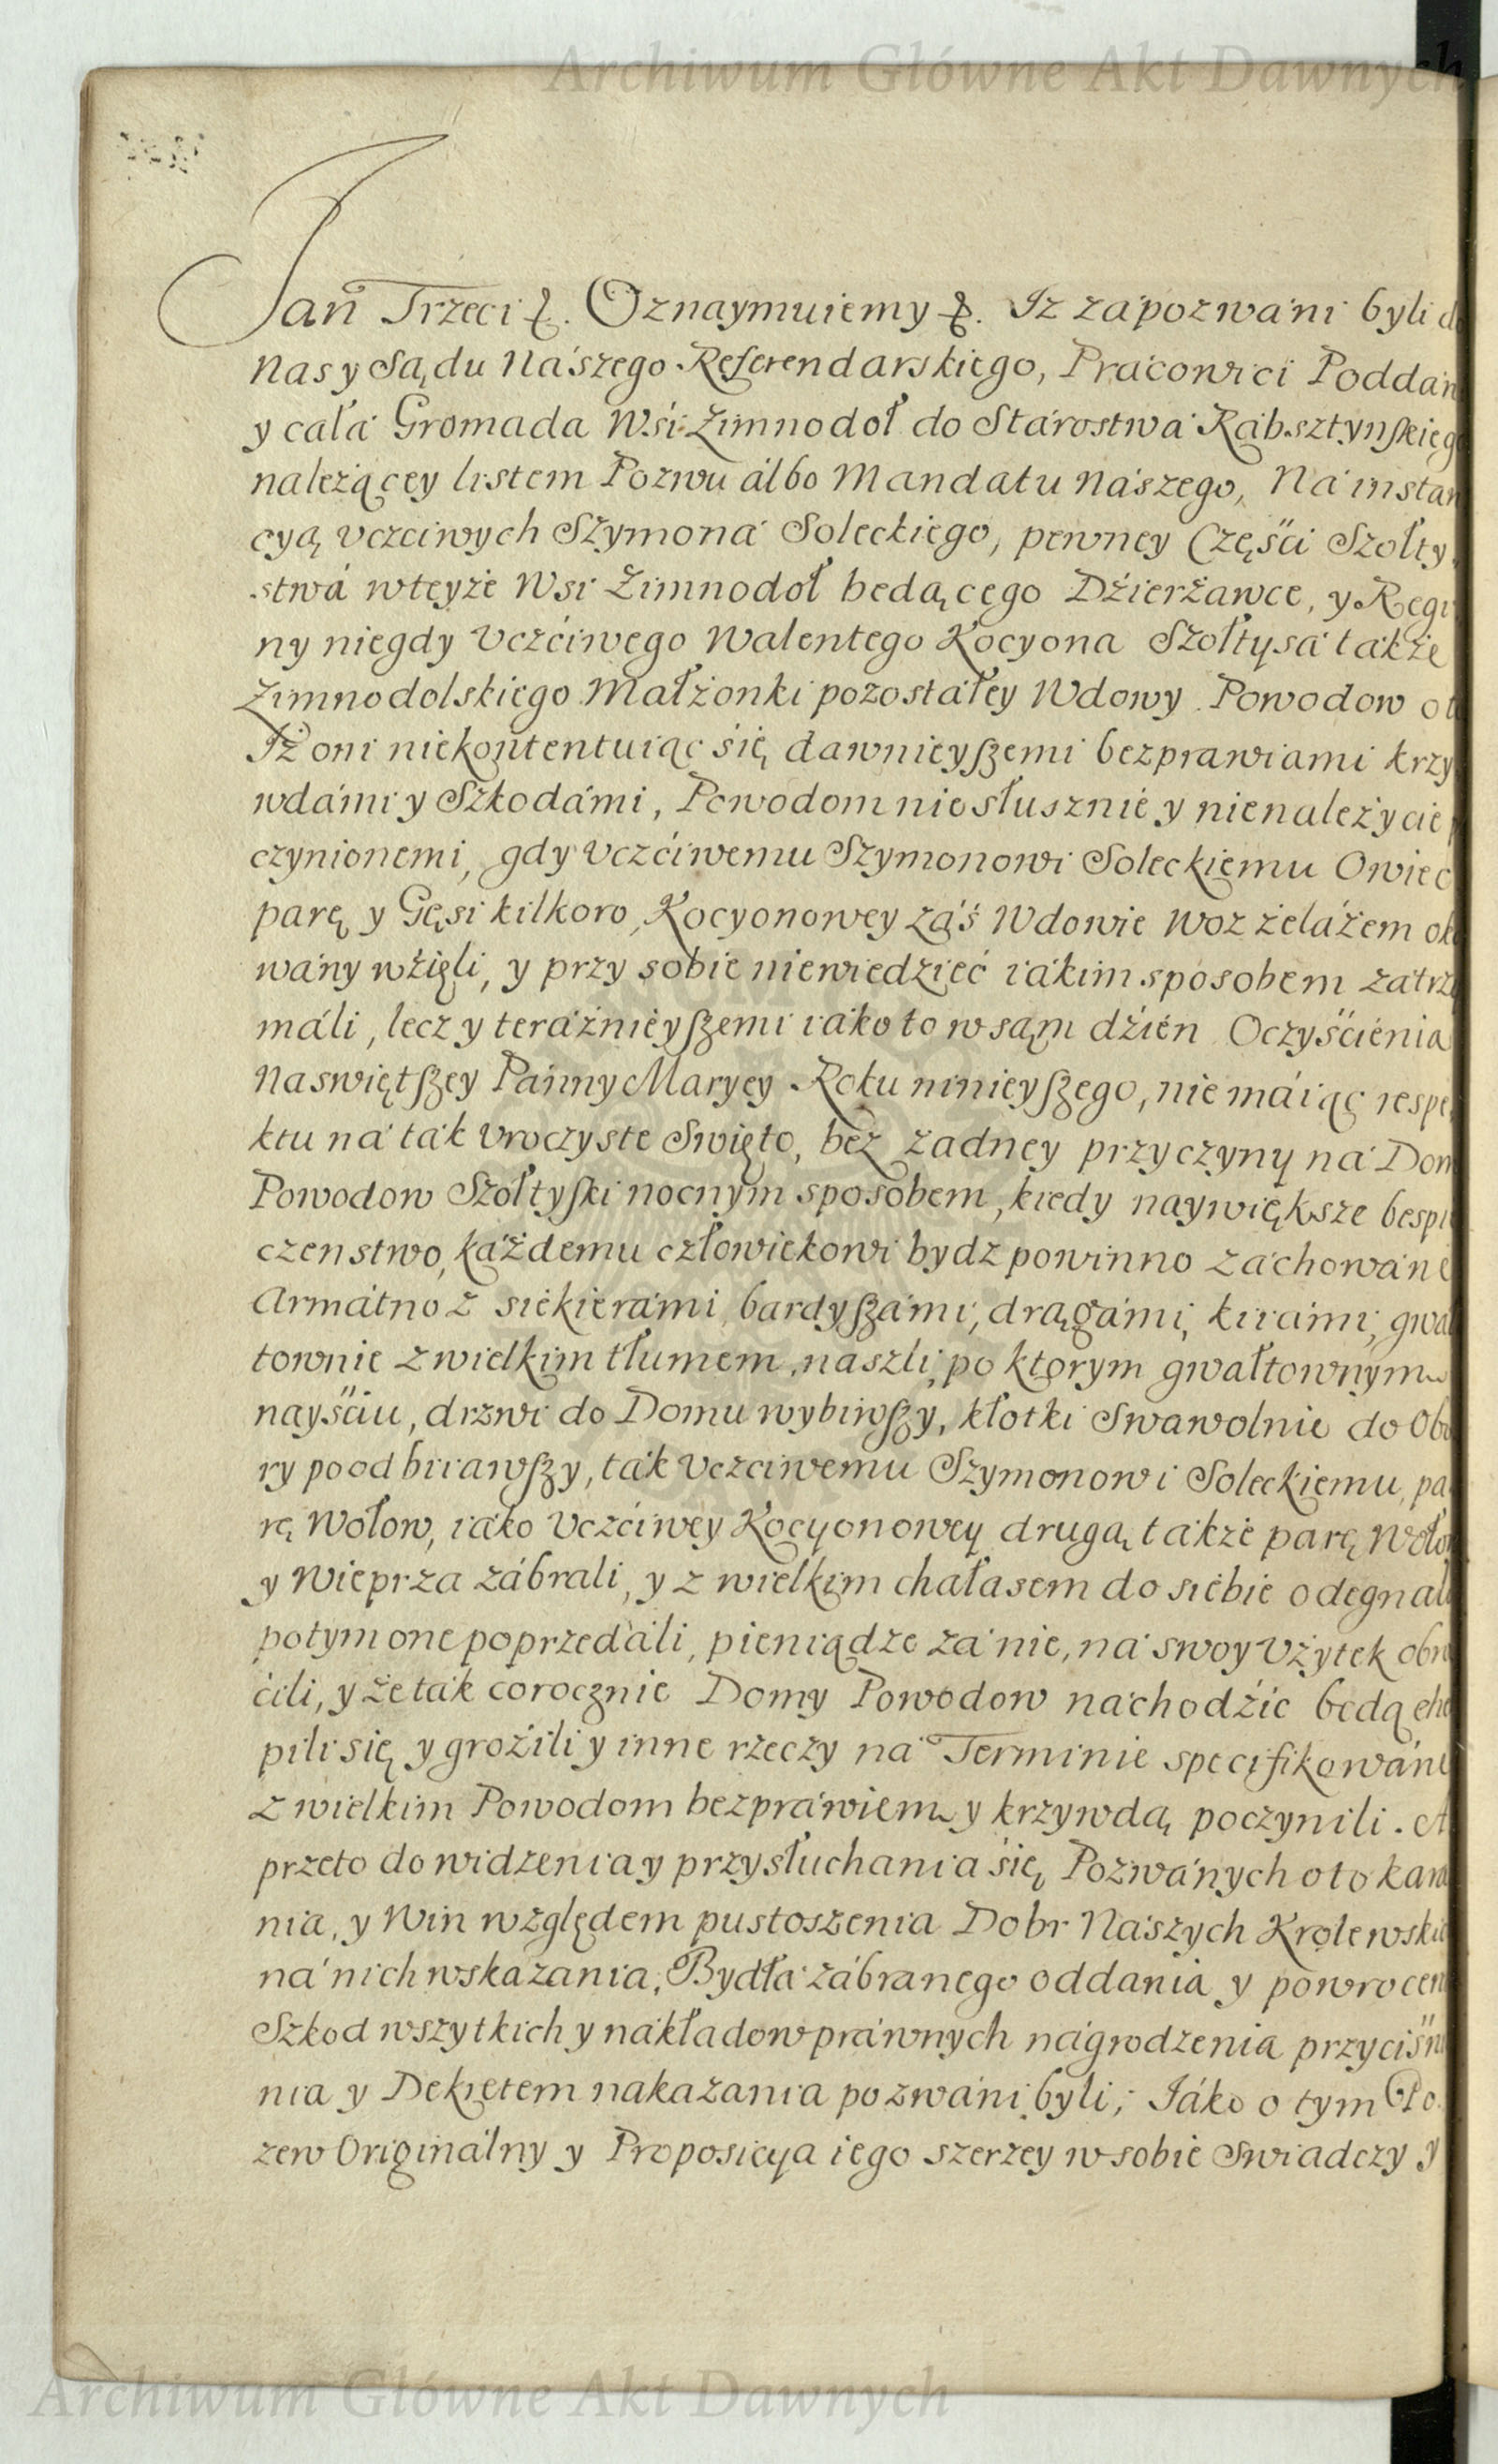 Archiwum Główne Akt Dawnych
Jan Trzeci &. Oznaymuiemy &. Iz zápozwáni byli
Nas y Sądu Nászego Referendarskiego, Prácowici
y cáła Gromada Wśi Zimnodoł do Stárostwá
należącey listem Pozwu álbo Mandatu Nászego, Ná
cyą Vczciwych Szymoná Soleckiego, pewney Częśći
stwá wteyże Wsi Zimnodoł bedącego Dźierżawce, y
ny niegdy Vczćiwego Walentego Kocyona Szołtysá tákże
Zimnodolskiego Małżonki pozostáłey Wdowy Powodow
Iż oni niekontentuiąc śię dawnieyszemi bezprawiami
wdámi y Szkodámi, Powodom niesłusznie y nienależycie
czynionemi, gdy Vczćiwemu Szymonowi Soleckiemu
parę y Gęsi kilkoro, Kocyonowey záś Wdowie Woz żelázem
wány wźięli, y przy sobie niewiedzieć iákim sposobem
máli, lecz y teráźnieyszemi iáko to w sąm dźień Oczyśćienia
Naswiętszey Pánny Maryey Roku ninieyszego, nie máiąc
ktu ná ták Vroczyste Swięto, bez żadney przyczyny ná
Powodow Szołtyski nocnym sposobem, kiedy naywiększe
czenstwo, káżdemu człowiekowi bydz powinno záchowáne
Armátno z siekierámi, bardyszámi, drągámi, kiiámi,
townie z wielkim tłumem naszli, po ktorym gwałtownym
nayśćiu, drzwi do Domu wybiwszy, kłotki Swawolnie do
ry poodbiiawszy, ták Vczciwemu Szymonowi Soleckiemu,
rę Wołow, iáko Vczćiwey Kocyonowey drugą tákże parę
y Wieprza zábrali, y z wielkim chałasem do siebie
potym one poprzedáli, pieniądze zá nie, ná swoy Vżytek
ćili, y że ták corocznie Domy Powodow náchodźić będą
pili się y groźili y inne rzeczy ná Terminie specifikowáne
z wielkim Powodom bezpráwiem y krzywdą poczynili. A
przeto do widzenia y przysłuchania śię Pozwánych o to
nia, y Win względem pustoszenia Dobr Nászych
ná nich wskazánia, Bydłá zábranego oddania y
Szkod wszytkich y nákładow práwnych nágrodzenia
nia y Dekretem nakazánia pozwáni byli; Iáko o tym Po
zew Originálny y Proposicya iego szerzey w sobie Swiadczy y
Archiwum Główne Akt Dawnych